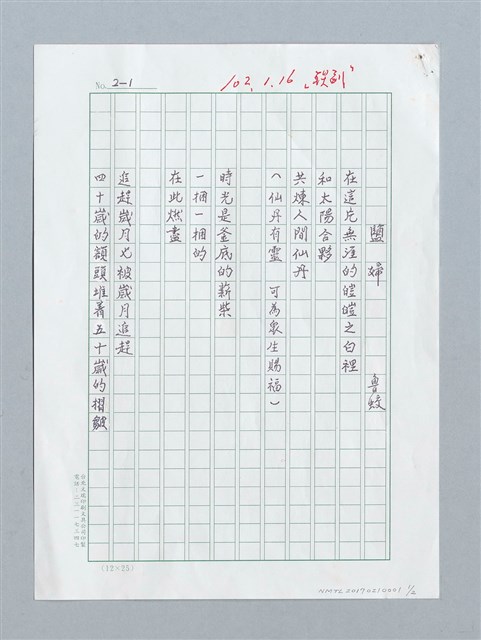 No. 2-1
102.1.16「聯副」
鹽婦 魯蛟
在這片無涯的皚皚之白裡
和太陽合夥
共煉人間仙丹
(仙丹有靈 可為眾生賜福)
時光是釜底的薪柴
一捆一捆的
在此燃盡
追趕歲月又被歲月追趕
四十歲的額頭堆着五十歲的摺皺
(12×25)
NMTL20170210001 1/2